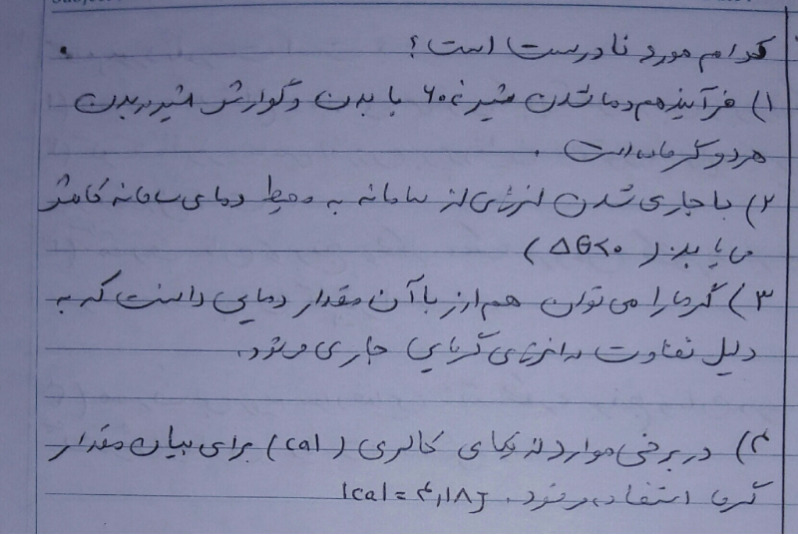 کدام مورد نادرست است؟
۱) فرآیند هم دما شدن شیر ۶۰°c با بدن و گوارش شیر در بدن
هر دو گرماده است.
۲) با جاری شدن انرژی از سامانه به محیط دمای سامانه کاهش
می یابد. (Δθ<۰)
۳) گرما را می توان هم ارز با آن مقدار دمایی دانست که به
دلیل تفاوت در انرژی گرمایی جاری می شود.
۴) در برخی موارد از یکای کالری (cal) برای بیان مقدار
گرما استفاده می شود. 1cal = ۴,۱۸J